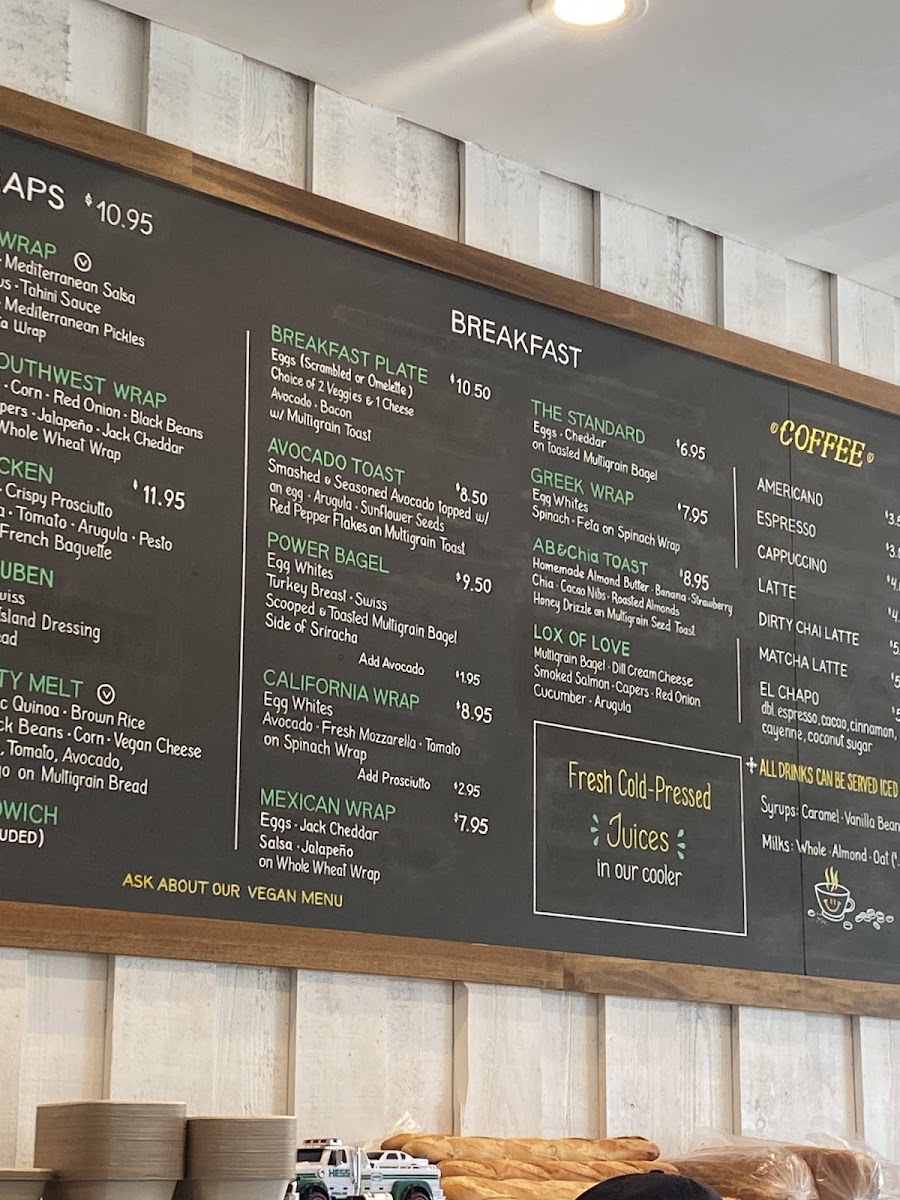 APS $10.95
WRAP V
Mediterranean Salsa
Tahini Sauce
Mediterranean Pickles
Wrap
OUTHWEST WRAP
Corn · Red Onion · Black Beans
Jalapeño · Jack Cheddar
Whole Wheat Wrap
CKEN $11.95
Crispy Prosciutto
Tomato · Arugula · Pesto
French Baguette
UBEN
wiss
Island Dressing
ead
TY MELT V
Quinoa · Brown Rice
ck Beans · Corn · Vegan Cheese
Tomato, Avocado,
on Multigrain Bread
DWICH
UDED)
ASK ABOUT OUR VEGAN MENU
BREAKFAST
BREAKFAST PLATE $10.50
Eggs (Scrambled or Omelette)
Choice of 2 Veggies & 1 Cheese
Avocado · Bacon
w/ Multigrain Toast
AVOCADO TOAST $8.50
Smashed & Seasoned Avocado topped w/
an egg · Arugula · Sunflower Seeds
Red Pepper Flakes on Multigrain Toast
POWER BAGEL $9.50
Egg Whites
Turkey Breast · Swiss
Scooped & Toasted Multigrain Bagel
Side of Sriracha
Add Avocado $1.95
CALIFORNIA WRAP $8.95
Egg Whites
Avocado · Fresh Mozzarella · Tomato
on Spinach Wrap
Add Prosciutto $2.95
MEXICAN WRAP $7.95
Eggs · Jack Cheddar
Salsa · Jalapeño
on Whole Wheat Wrap
THE STANDARD $6.95
Eggs · Cheddar
on Toasted Multigrain Bagel
GREEK WRAP $7.95
Egg Whites
Spinach · Feta on Spinach Wrap
AB&Chia TOAST $8.95
Homemade Almond Butter · Banana · Strawberry
Chia · Cacao Nibs · Roasted Almonds
Honey Drizzle on Multigrain Seed Toast
LOX OF LOVE
Multigrain Bagel · Dill Cream Cheese
Smoked Salmon · Capers · Red Onion
Cucumber · Arugula
Fresh Cold-Pressed
Juices
in our cooler
COFFEE
AMERICANO $3.
ESPRESSO $3.
CAPPUCCINO $4.
LATTE $4.
DIRTY CHAI LATTE $5.
MATCHA LATTE $5
EL CHAPO $5
dbl. espresso, cacao, cinnamon,
cayenne, coconut sugar
ALL DRINKS CAN BE SERVED ICED
Syrups: Caramel · Vanilla Bean
Milks: Whole · Almond · Oat (
HESS